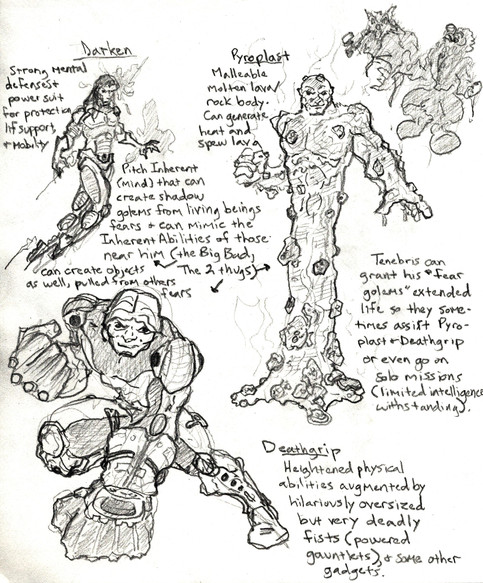 Darken
Strong mental
defenses &
power suit
for protection
hf support,
& Mobility
Pitch Inherent
(Mind) that can
create shadow
golems from living beings
fears & can mimic the
Inherent Abilities of those
near him (the Big Bad)
can create objects
as well, pulled from others
fears
The 2 thugs)
Pyroplast
Malleable
molten lava/
rock body.
Can generate
heat and
spew lava
Tenebris can
grant his "fear
golems" extended
life so they some-
times assist Pyro-
plast & Deathgrip
or even go on
solo missions
(limited intelligence
withstanding).
Deathgrip
Heightened physical
abilities augmented by
hilariously oversized
but very deadly
fists (powered
gauntlets), & some other
gadgets.